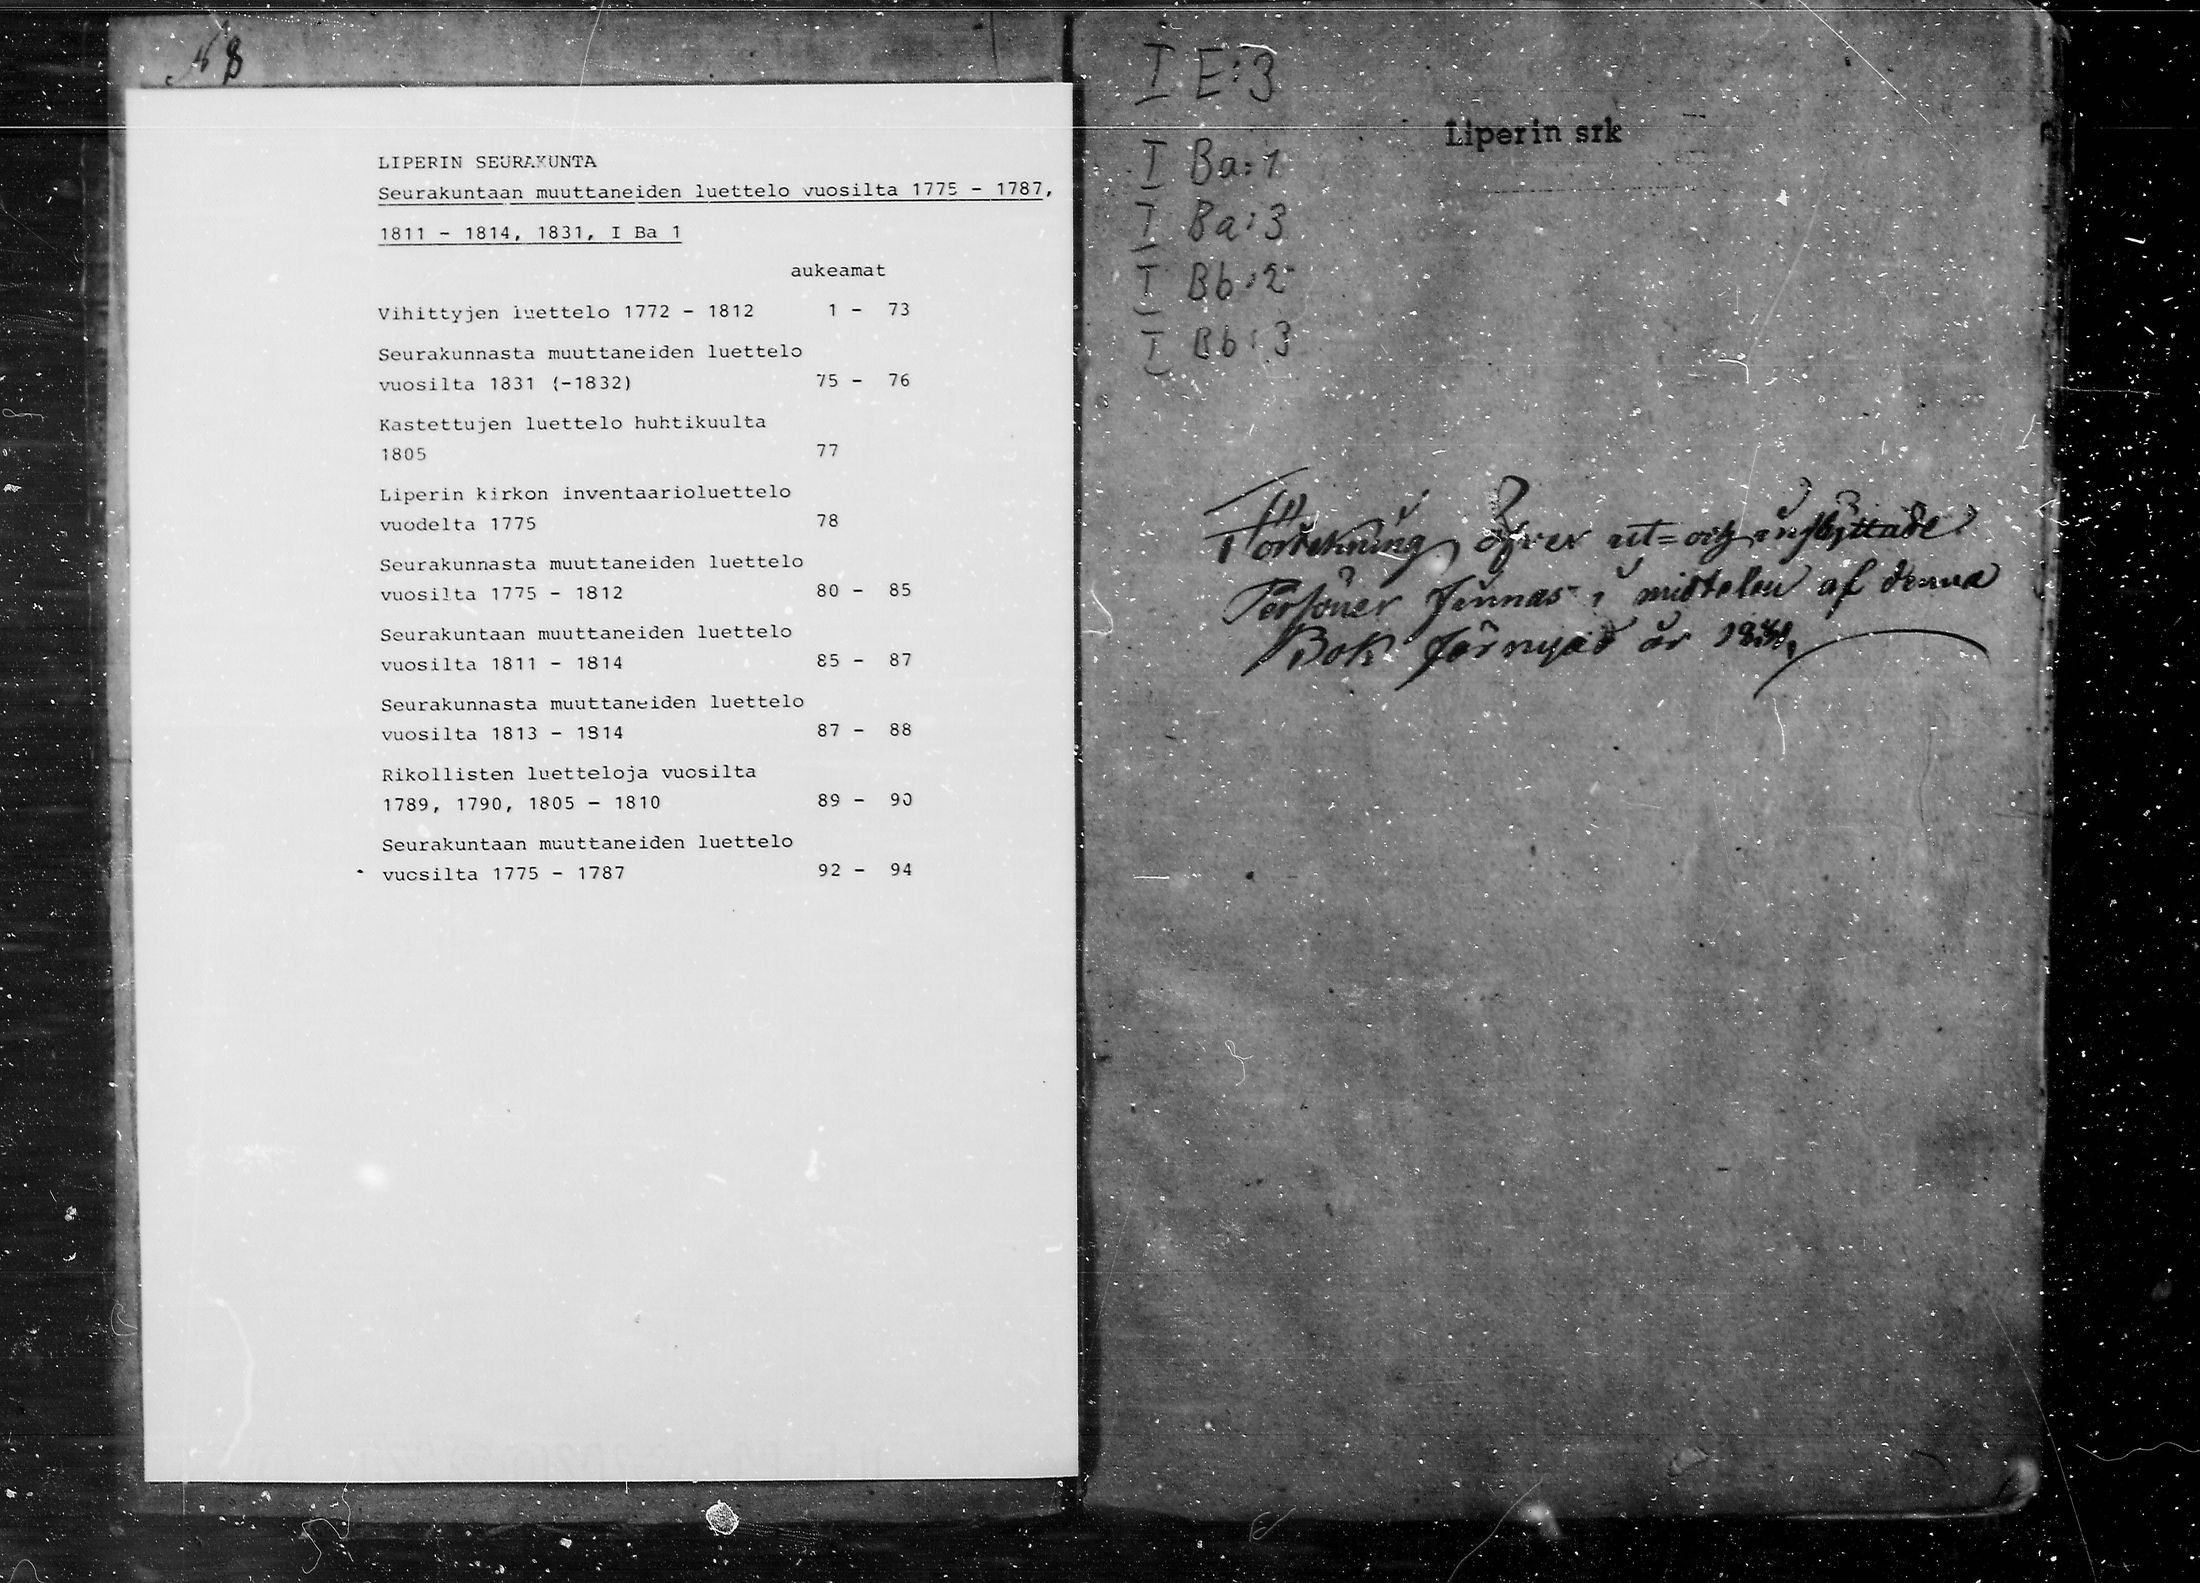 N 8
LIPERIN SEURAKUNTA
Seurakuntaan muuttaneiden luettelo vuosilta 1775 - 1787,
1811 - 1814, 1831, I Ba 1
aukeamat
Vihittyjen luettelo 1772 - 1812 1 - 73
Seurakunnasta muuttaneiden luettelo
vuosilta 1831 (-1832) 75 - 76
Kastettujen luettelo huhtikuulta
1805 77
Liperin kirkon inventaarioluettelo
vuodelta 1775 78
Seurakunnasta muuttaneiden luettelo
vuosilta 1775 - 1812 80 - 85
Seurakuntaan muuttaneiden luettelo
vuosilta 1811 - 1814 85 - 87
Seurakunnasta muuttaneiden luettelo
vuosilta 1813 - 1814 87 - 88
Rikollisten luetteloja vuosilta
1789, 1790, 1805 - 1810 89 - 90
Seurakuntaan muuttaneiden luettelo
vuosilta 1775 - 1787 92 - 94
I E:3
Liperin srk
I Ba:1
I Ba:3
I Bb:2
I Bb:3
Förtekning öfver ut= och inflyttade
Personer finnas i midtelen af denna
Bok förnyad år